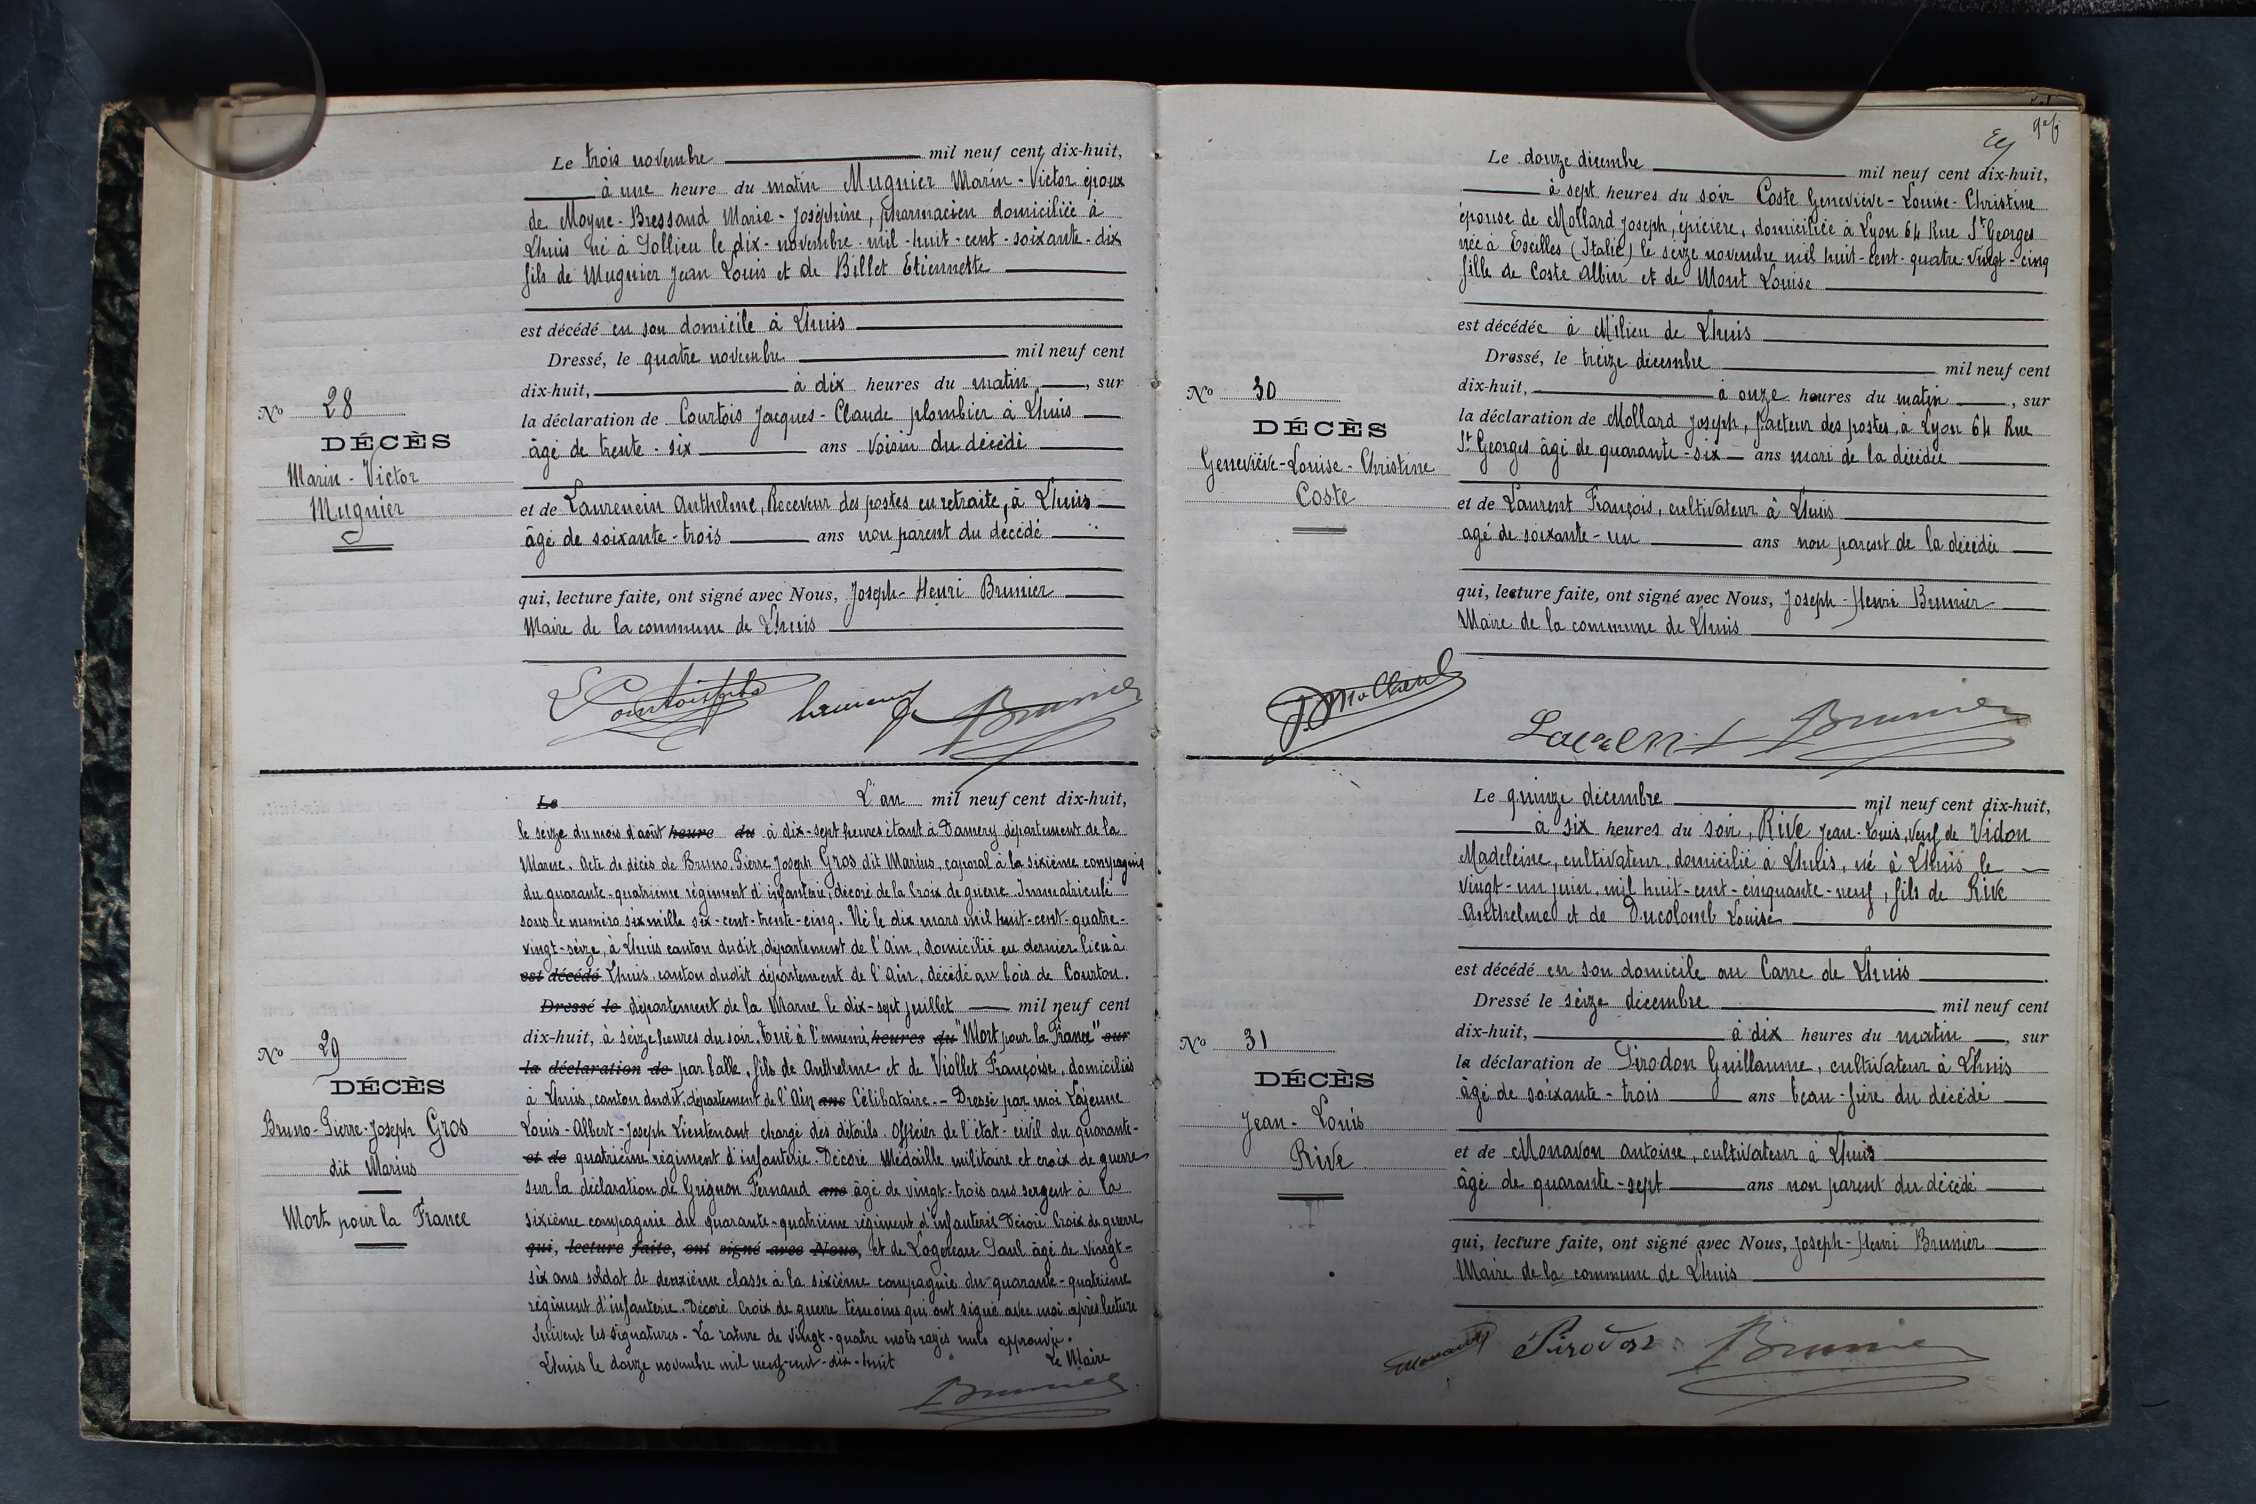 Le trois novembre mil neuf cent dix-huit,
à une heure du matin Mugnier Marin-Victor époux
de Moyne-Bressand Marie-Joséphine, pharmacien domiciliée à
Lhuis né à Sollieu le dix-novembre-mil-huit-cent-soixante-dix
fils de Mugnier Jean Louis et de Billet Etiennette
est décédé en son domicile à Lhuis
Dressé, le quatre novembre mil neuf cent
dix-huit, à dix heures du matin, sur
la déclaration de Courtois Jacques-Claude plombier à Lhuis
âgé de trente-six ans voisin du décédé
et de Laurencin Anthelme, Receveur des postes en retraite, à Lhuis
âgé de soixante-trois ans non parent du décédé
qui, lecture faite, ont signé avec Nous, Joseph-Henri Brunier
Maire de la commune de Lhuis
Brunier
No 28
DÉCÈS
Marin-Victor
Mugnier
Le L'an mil neuf cent dix-huit,
le seize du mois d'août heure du à dix-sept heures étant à Damery département de la
Marne. Acte de décès de Bruno, Pierre Joseph Gros dit Marius, caporal à la sixième compagnie
du quarante-quatrième régiment d'infanterie, décoré de la Croix de guerre. Immatriculé
sous le numéro six mille six-cent-trente-cinq. Né le dix mars mil huit-cent-quatre-
vingt-seize, à Lhuis canton dudit, département de l'Ain, domicilié en dernier lieu à
est décédé Lhuis, canton dudit département de l'Ain, décédé au bois de Courton.
Dressé le département de la Marne le dix-sept juillet mil neuf cent
dix-huit, à seize heures du soir, tué à l'ennemi, heures du "Mort pour la France" sur
la déclaration de par balle, fils de Anthelme et de Viollet Françoise, domiciliés
à Lhuis, canton dudit, département de l'Ain ans Célibataire.- Dressé par moi Lajeune
Louis-Albert-Joseph Lieutenant chargé des détails. Officier de l'état-civil du quarante-
et de quatrième régiment d'infanterie. Décoré Médaille militaire et croix de guerre
sur la déclaration de Grignon Fernand ans âgé de vingt-trois ans sergent à la
sixième compagnie du quarante-quatrième régiment d'infanterie Décoré Croix de guerre
qui, lecture faite, ont signé avec Nous, et de Logereau Paul âgé de vingt-
six ans soldat de deuxième classe à la sixième compagnie du quarante-quatrième
régiment d'infanterie. Décoré Croix de guerre témoins qui ont signé avec moi après lecture
Suivent les signatures. La rature de vingt-quatre mots rayés nuls approuvée.
Lhuis le douze novembre mil neuf-cent-dix-huit Le Maire
Brunier
No 29
DÉCÈS
Bruno-Pierre-Joseph Gros
dit Marius
Mort pour la France
Le douze décembre mil neuf cent dix-huit,
à sept heures du soir Coste Geneviève-Louise-Christine
épouse de Mollard Joseph, épicière, domiciliée à Lyon 64 Rue St Georges
née à Exilles (Italie) le seize novembre mil huit-cent-quatre-vingt-cinq
fille de Coste Albin et de Mont Louise
est décédée à Milieu de Lhuis
Dressé, le treize décembre mil neuf cent
dix-huit, à onze heures du matin, sur
la déclaration de Mollard Joseph, facteur des postes, à Lyon 64 Rue
St Georges âgé de quarante-six ans mari de la décédée
et de Laurent François, cultivateur à Lhuis
âgé de soixante-un ans non parent de la décédée
qui, lecture faite, ont signé avec Nous, Joseph-Henri Brunier
Maire de la commune de Lhuis
J. Mollard Laurent Brunier
No 30
DÉCÈS
Geneviève-Louise-Christine
Coste
Le quinze décembre mil neuf cent dix-huit,
à six heures du soir, Rive Jean-Louis, veuf de Vidon
Madeleine, cultivateur, domicilié à Lhuis, né à Lhuis le
vingt-un juin mil huit-cent-cinquante-neuf, fils de Rive
Anthelme et de Ducolomb Louise
est décédé en son domicile au Carre de Lhuis
Dressé le seize décembre mil neuf cent
dix-huit, à dix heures du matin, sur
la déclaration de Pirodon Guillaume, cultivateur à Lhuis
âgé de soixante-trois ans beau-frère du décédé
et de Monavon Antoine, cultivateur à Lhuis
âgé de quarante-sept ans non parent du décédé
qui, lecture faite, ont signé avec Nous, Joseph-Henri Brunier
Maire de la commune de Lhuis
Monavon Pirodon Brunier
No 31
DÉCÈS
Jean-Louis
Rive